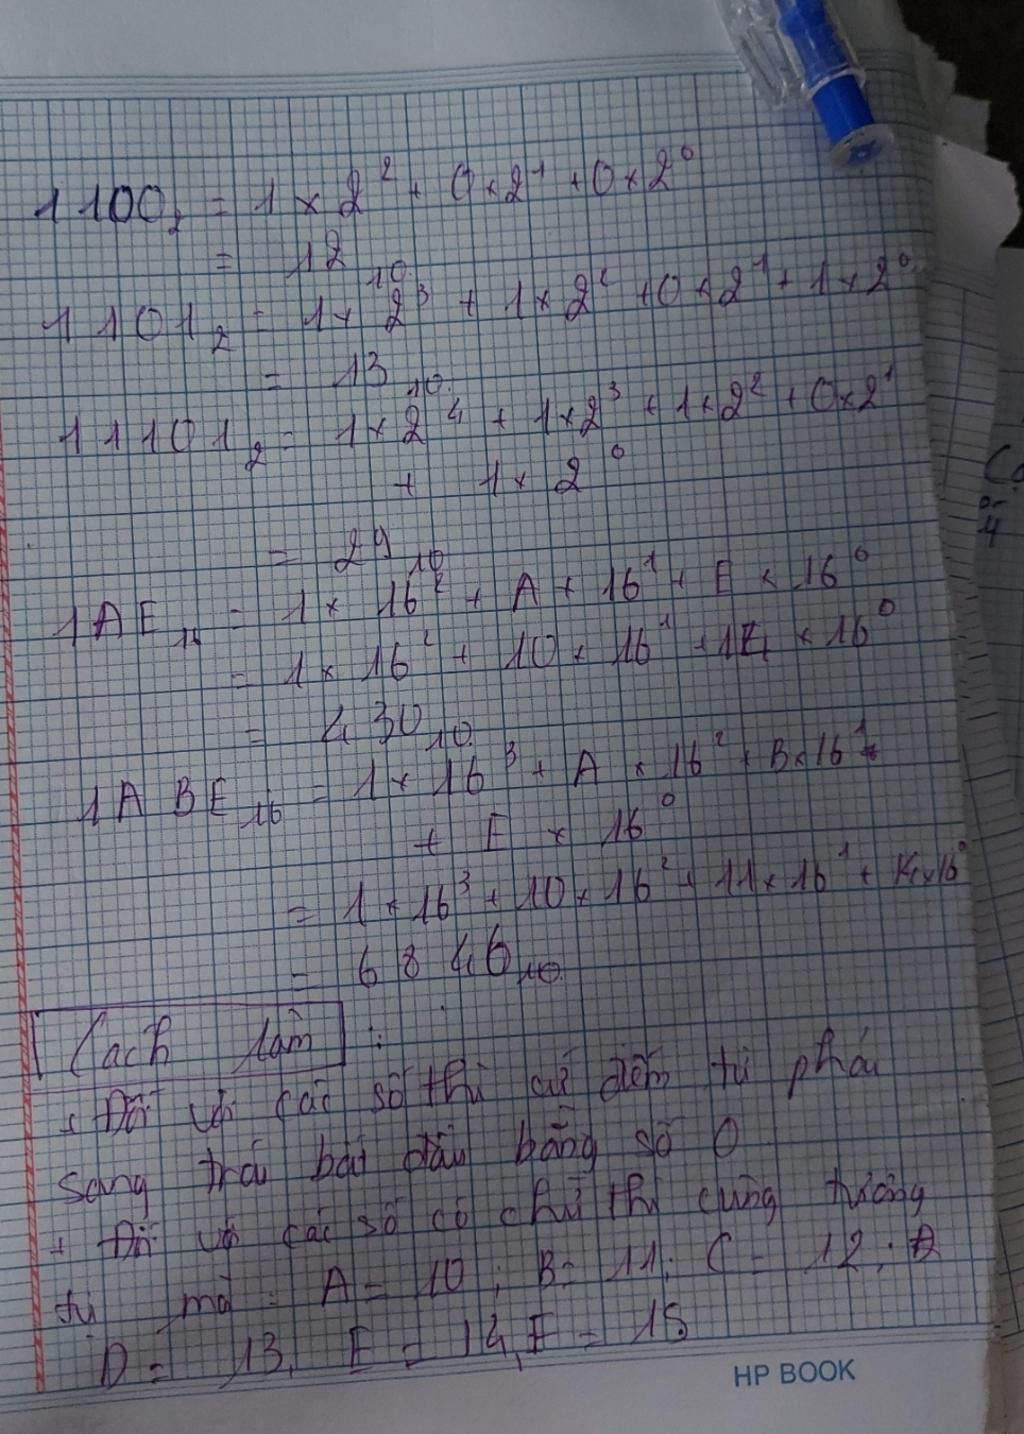 1100₂ = 1 × 2² + 0×2¹ + 0×2⁰
= 12₁₀
1101₂ = 1× 2³ + 1×2² +0×2¹ + 1×2⁰
= 13₁₀.
11101₂ = 1×2⁴ + 1×2³ + 1×2² + 0×2¹
+ 1× 2⁰
= 29₁₀
1AE₁₆ = 1× 16² + A × 16¹ + E × 16⁰
= 1× 16² + 10 × 16¹ + 14 × 16⁰
= 430₁₀.
1ABE₁₆ = 1× 16³ + A × 16² + B×16¹
+ E × 16⁰
= 1 × 16³ + 10 × 16² + 11 × 16¹ + 14×16⁰
= 6846₁₀.
Cách làm :
+ Đối với các số thì cứ đếm từ phải
sang trái bắt đầu bằng số 0
+ Đối với các số có chữ thì cũng tương
tự mà : A = 10 ; B = 11 ; C = 12 ;
D = 13, E = 14, F = 15
HP BOOK